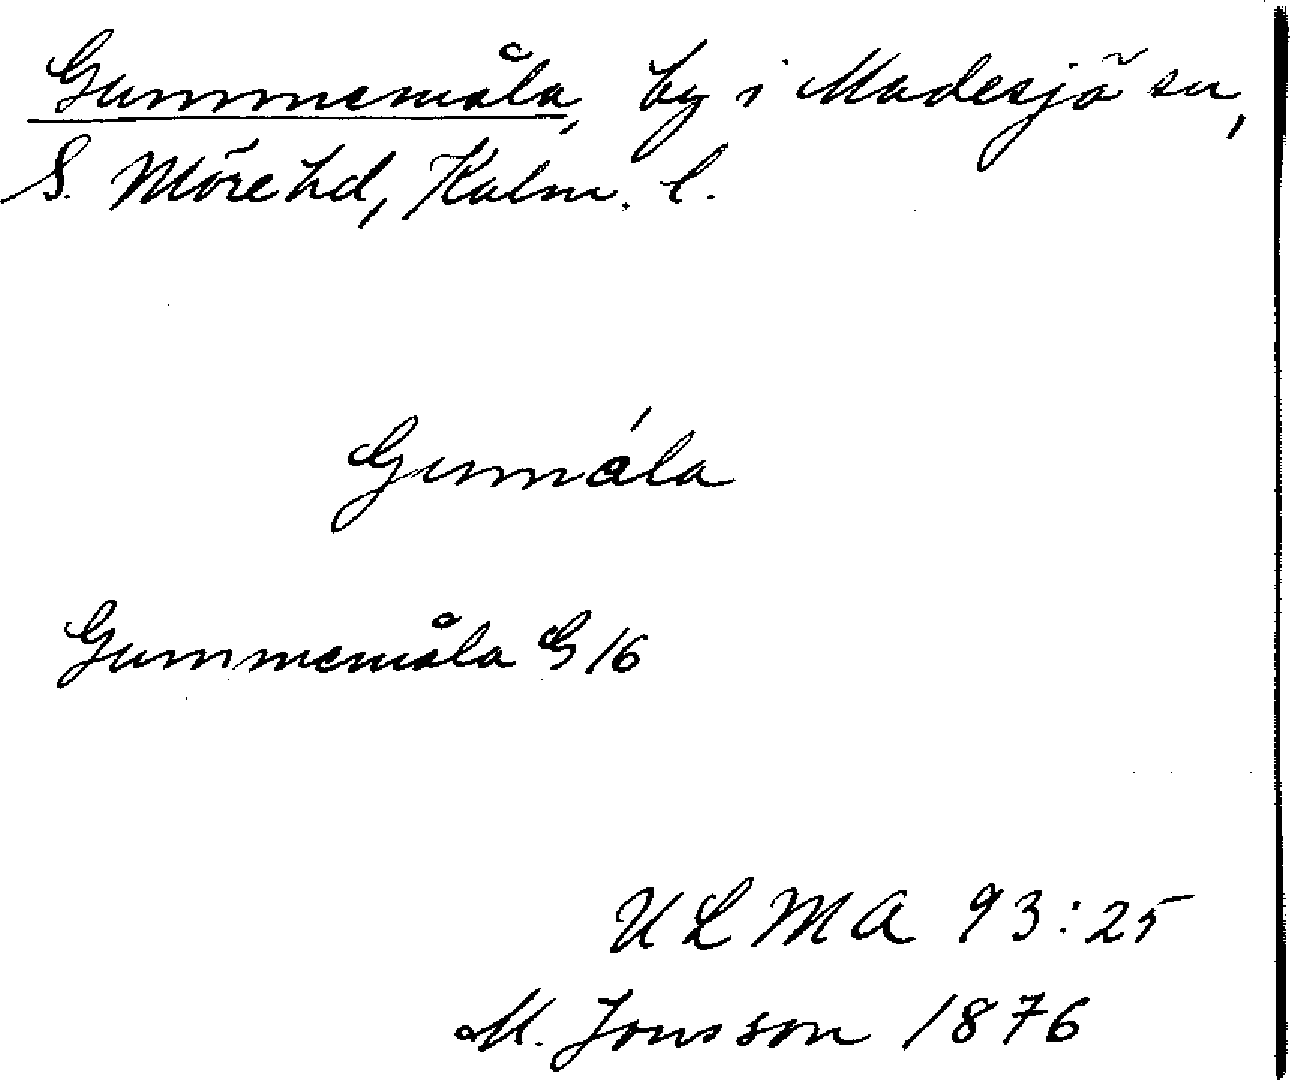 Gummemåla, by i Madesjö sn,
S. Möre hd, Kalm. l.
Gummåla
Gummemåla G 16
ULMA 93:25
M. Jonsson 1876